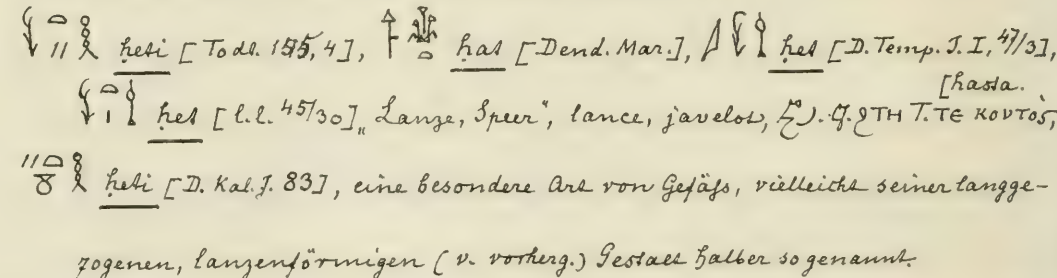 ḥeti [Todt. 155, 4], ḥat [Dend. Mar.], ḥet [D. Temp. J. I, 47/3],
ḥet [l. l. 45/30] „Lanze, Speer“, lance, javelot, ϩⲦⲎ Ⲧ. ⲦⲈ κοντὸς, [hasta.
ḥeti [D. Kal. J. 83], eine besondere Art von Gefäß, vielleicht seiner langge-
zogenen, lanzenförmigen (v. vorherg.) Gestalt halber so genannt.